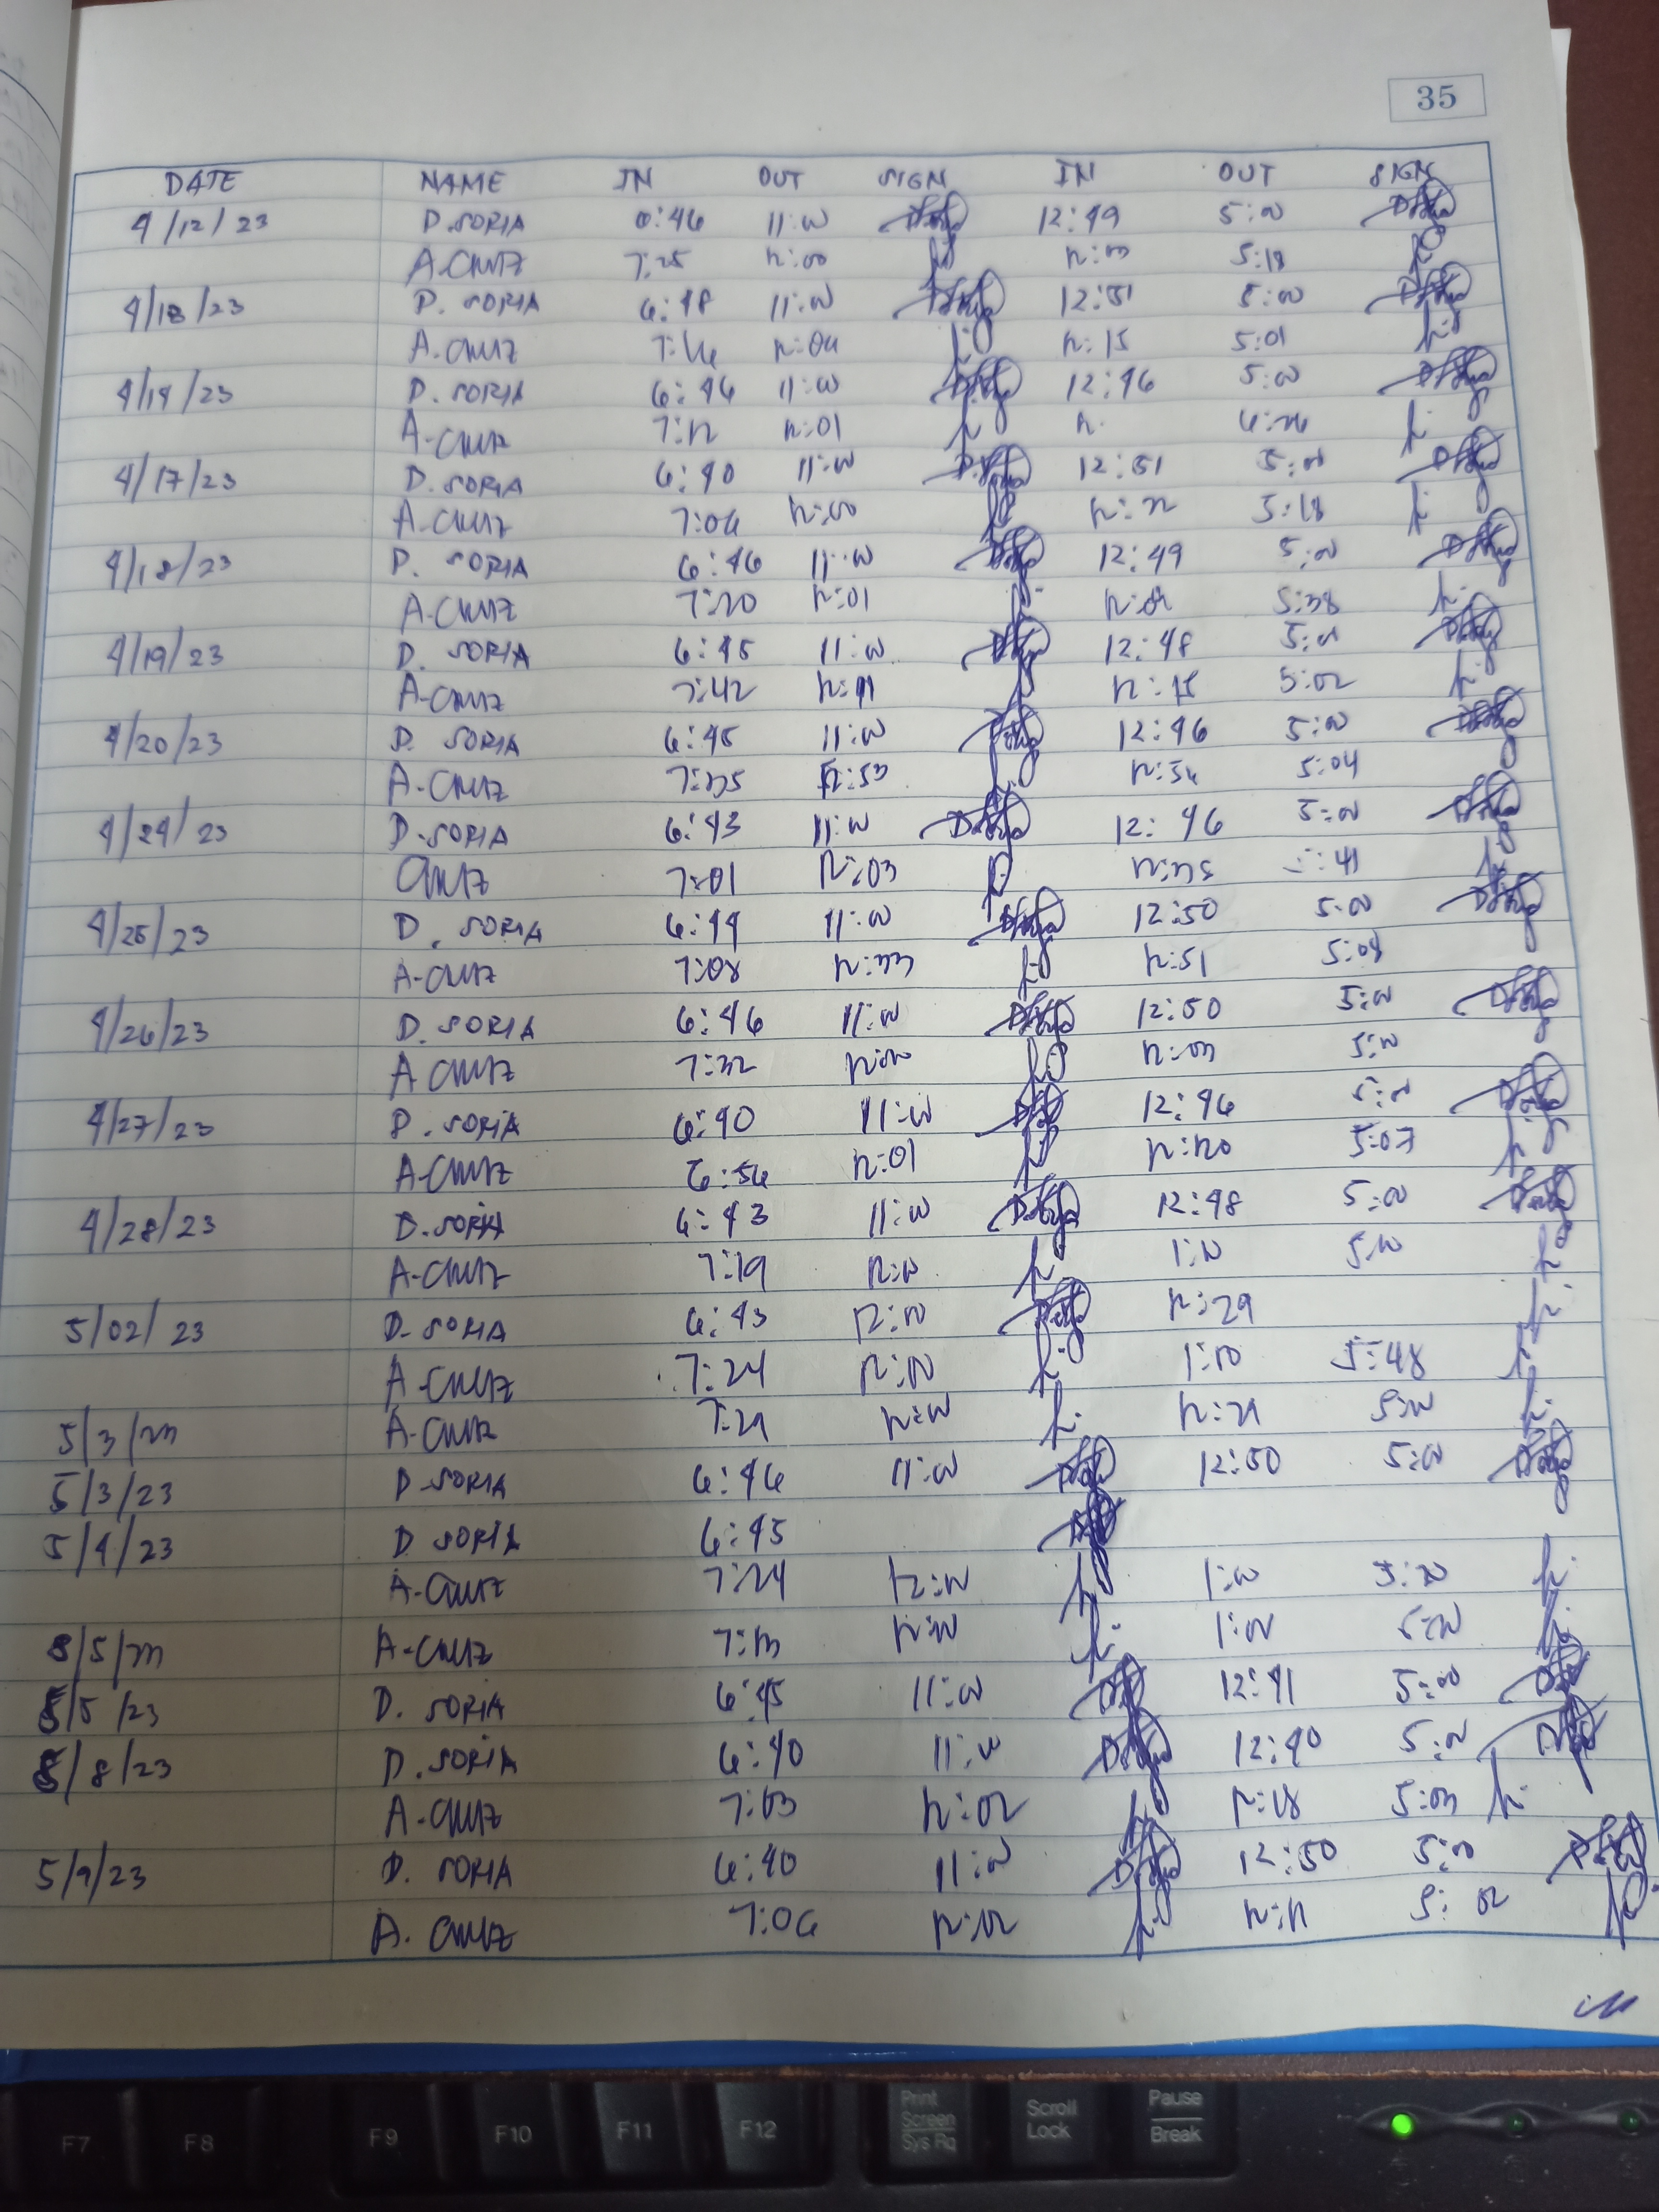 35
DATE NAME IN OUT SIGN IN OUT SIGN
4/12/23 D. SORIA 6:46 11:00 12:49 5:00
A. CRUZ 7:25 12:00 12:00 5:18
4/13/23 D. SORIA 6:48 11:00 12:51 5:00
A. CRUZ 12:04 12:15 5:01
4/14/23 D. SORIA 6:46 11:00 12:46 5:00
A. CRUZ 7:12 12:01 12:
4/17/23 D. SORIA 6:40 11:00 12:51 5:00
A. CRUZ 7:06 12:00 12:22 5:18
4/18/23 D. SORIA 6:46 11:00 12:49 5:00
A. CRUZ 7:20 12:01 5:38
4/19/23 D. SORIA 6:45 11:00 12:48 5:00
A. CRUZ 7:42 12:11 12:15 5:02
4/20/23 D. SORIA 6:45 11:00 12:46 5:00
A. CRUZ 7:25 12:53 12:54 5:04
4/24/23 D. SORIA 6:43 11:00 12:46 5:00
CRUZ 7:01 12:03 12:25 5:41
4/25/23 D. SORIA 6:44 11:00 12:50 5:00
A. CRUZ 7:08 12:33 12:51 5:08
4/26/23 D. SORIA 6:46 11:00 12:50 5:00
A. CRUZ 7:32 12:00 12:03 5:00
4/27/23 D. SORIA 6:40 11:00 12:46 5:00
A. CRUZ 6:56 12:01 12:20 5:07
4/28/23 D. SORIA 6:43 11:00 12:48 5:00
A. CRUZ 7:19 12:00 1:00 5:00
5/02/23 D. SORIA 6:43 12:00 12:29
A. CRUZ 7:24 12:00 1:00 5:48
5/3/23 A. CRUZ 7:21 12:00 12:21 5:00
5/3/23 D. SORIA 6:46 11:00 12:50 5:00
5/4/23 D. SORIA 6:45
A. CRUZ 7:24 12:00 1:00 5:20
5/5/23 A. CRUZ 7:13 12:00 1:00 5:00
5/5/23 D. SORIA 6:45 11:00 12:41 5:00
5/8/23 D. SORIA 6:40 11:00 12:40 5:00
A. CRUZ 7:03 12:02 12:18 5:03
5/9/23 D. SORIA 6:40 11:00 12:50 5:00
A. CRUZ 7:06 12:02 12:11 5:02
F7 F8 F9 F10 F11 F12 Print Screen Sys Rq Scroll Lock Pause Break